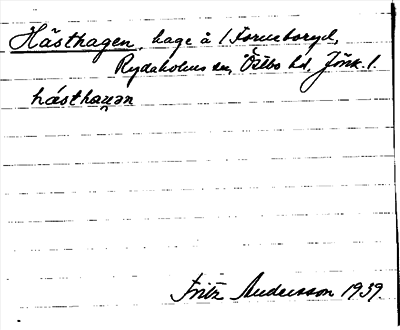 Hästhagen, hage å 1 Forneboryd,
Rydaholms sn, Östbo hd. Jönk. l.
hásthaꬼən
Fritz Andersson 1939.